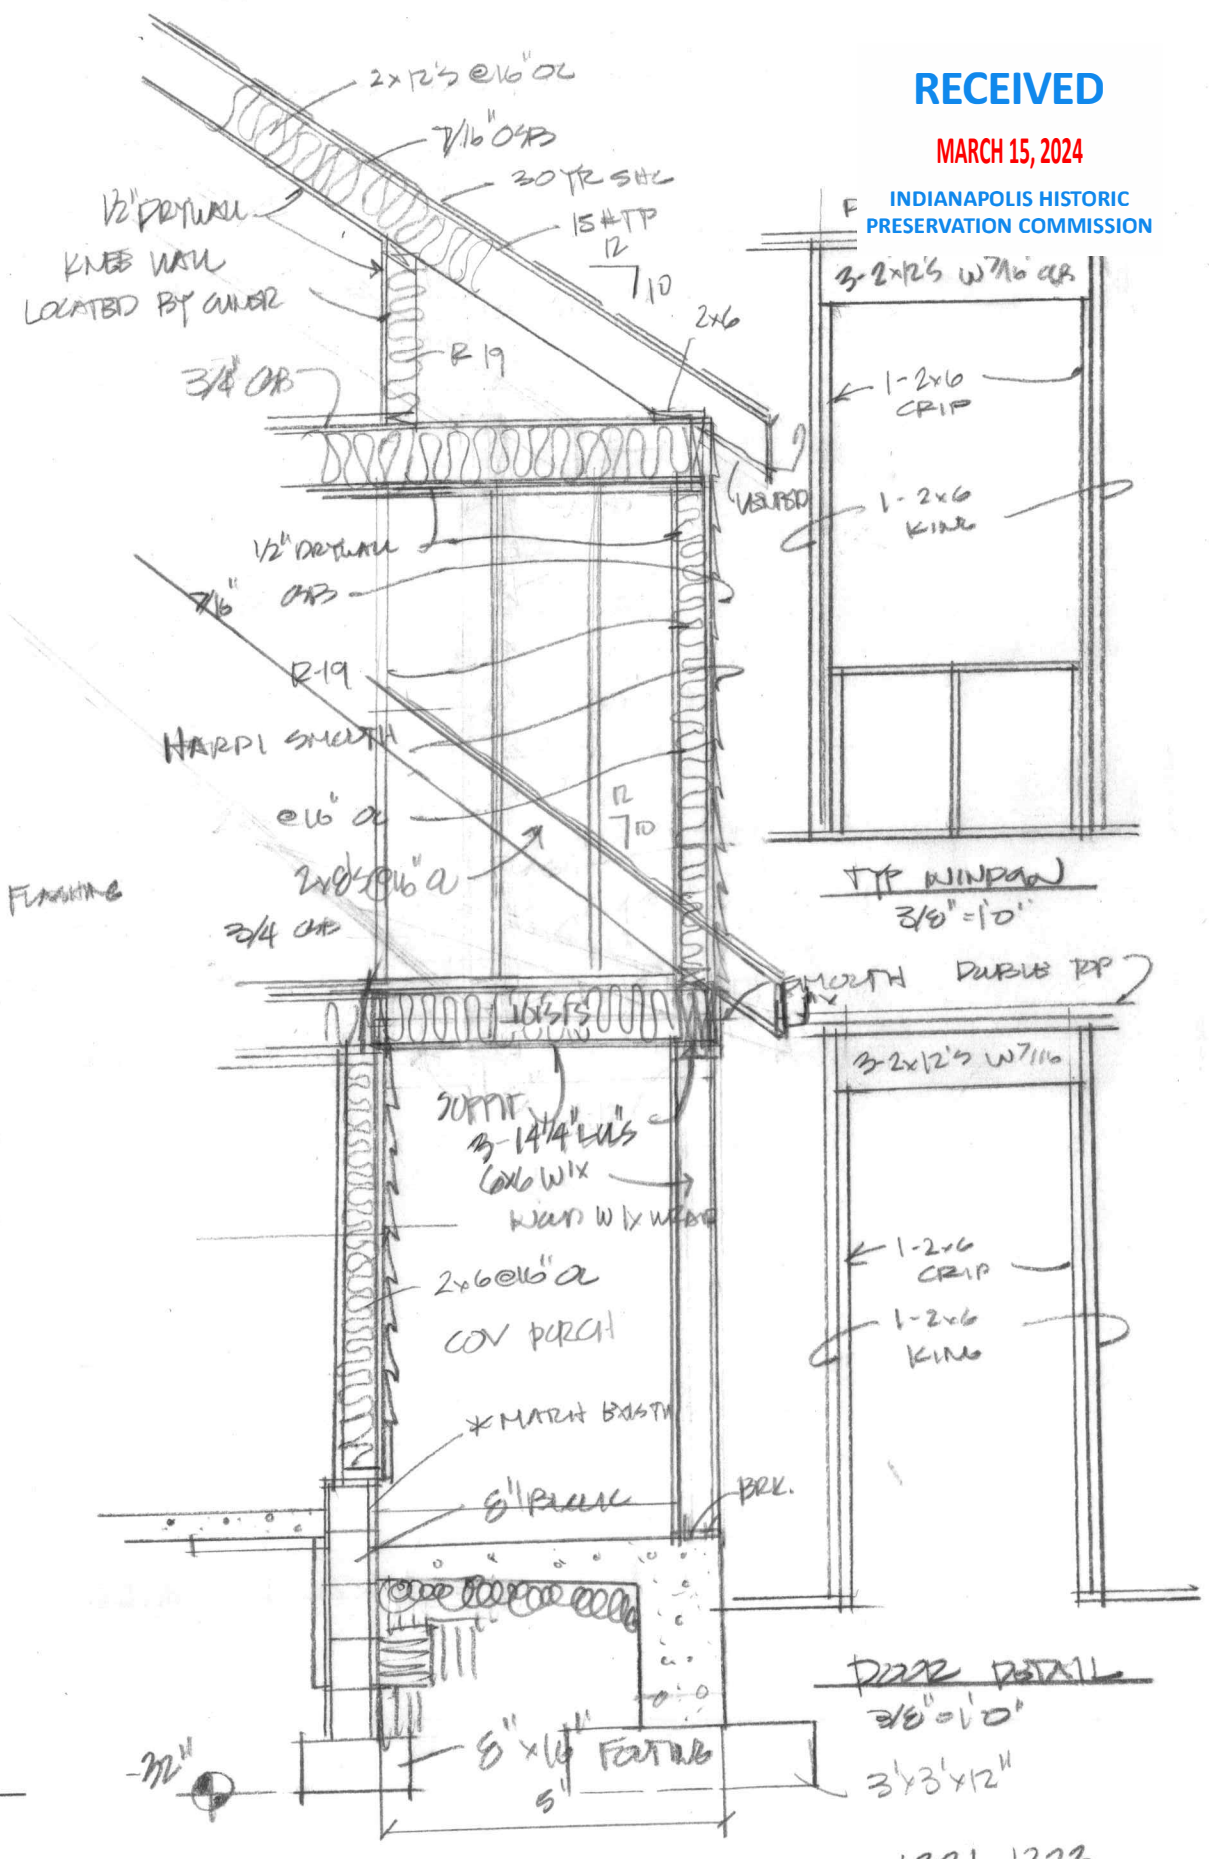 RECEIVED
MARCH 15, 2024
INDIANAPOLIS HISTORIC
PRESERVATION COMMISSION
2x12'S @16" OC
7/16" OSB
30 YR SHG
15# TP
12
10
1/2" DRYWALL
KNEE WALL
LOCATED BY OWNER
2x6
R 19
3/4" OSB
VENTED
1/2" DRYWALL
7/16" OSB
R-19
HARDI SMOOTH
@16" OC
12
10
2x8'S @16" OC
FLASHING
3/4 OSB
SOFFIT
3-14 1/4" LVL'S
6x6 W 1X
WOOD W 1X WRAP
2x6@16" OC
COV PORCH
* MATCH EXIST'N
8" BLOCK
BRK.
-32"
8" x 16" FOOTING
5'
3'x3'x12"
3-2x12'S W 7/16 OSB
1-2x6
CRIP
1-2x6
KING
TYP WINDOW
3/8"=1'0"
SMOOTH
DOUBLE TOP
3-2x12'S W 7/16
1-2x6
CRIP
1-2x6
KING
DOOR DETAIL
3/8"=1'0"